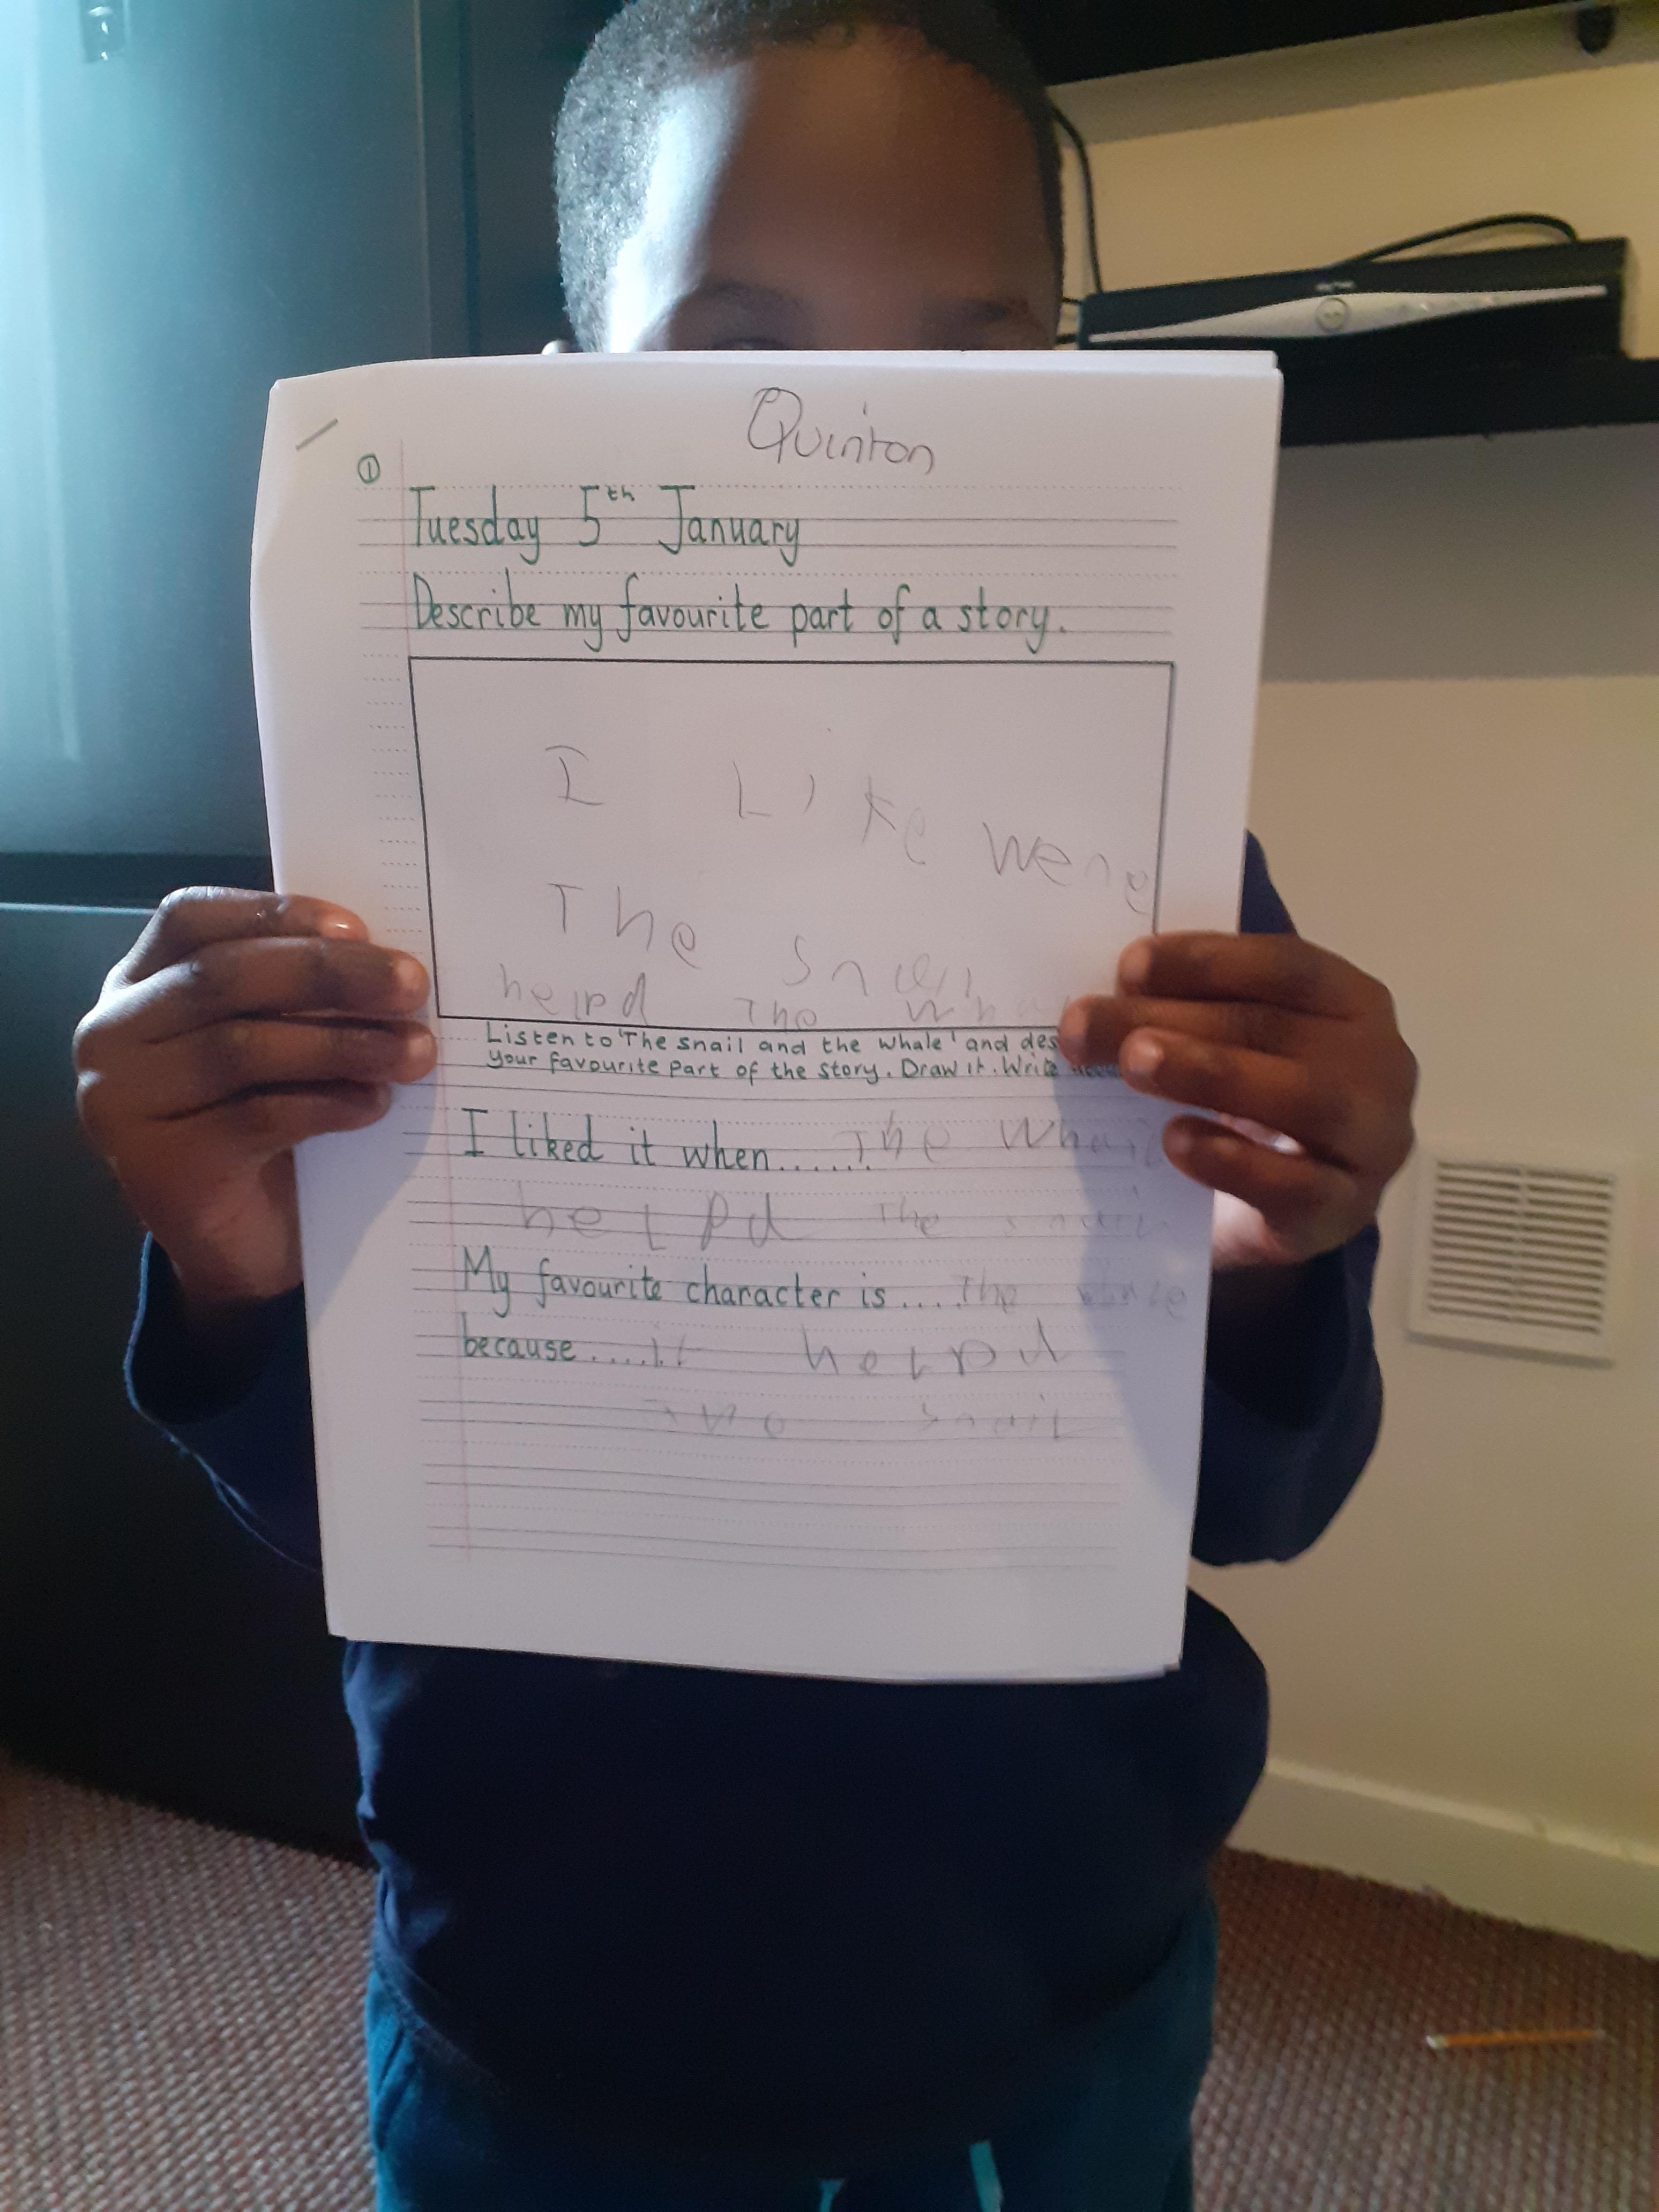 Quinton
①
Tuesday 5th January
Describe my favourite part of a story.
I Like wene
The snail
helpd The wha
Listen to 'The snail and the whale' and des
your favourite part of the story. Draw it. Write
I liked it when....... The Whail
helpd The snail
My favourite character is .... The
because ..... it helpd
The snail